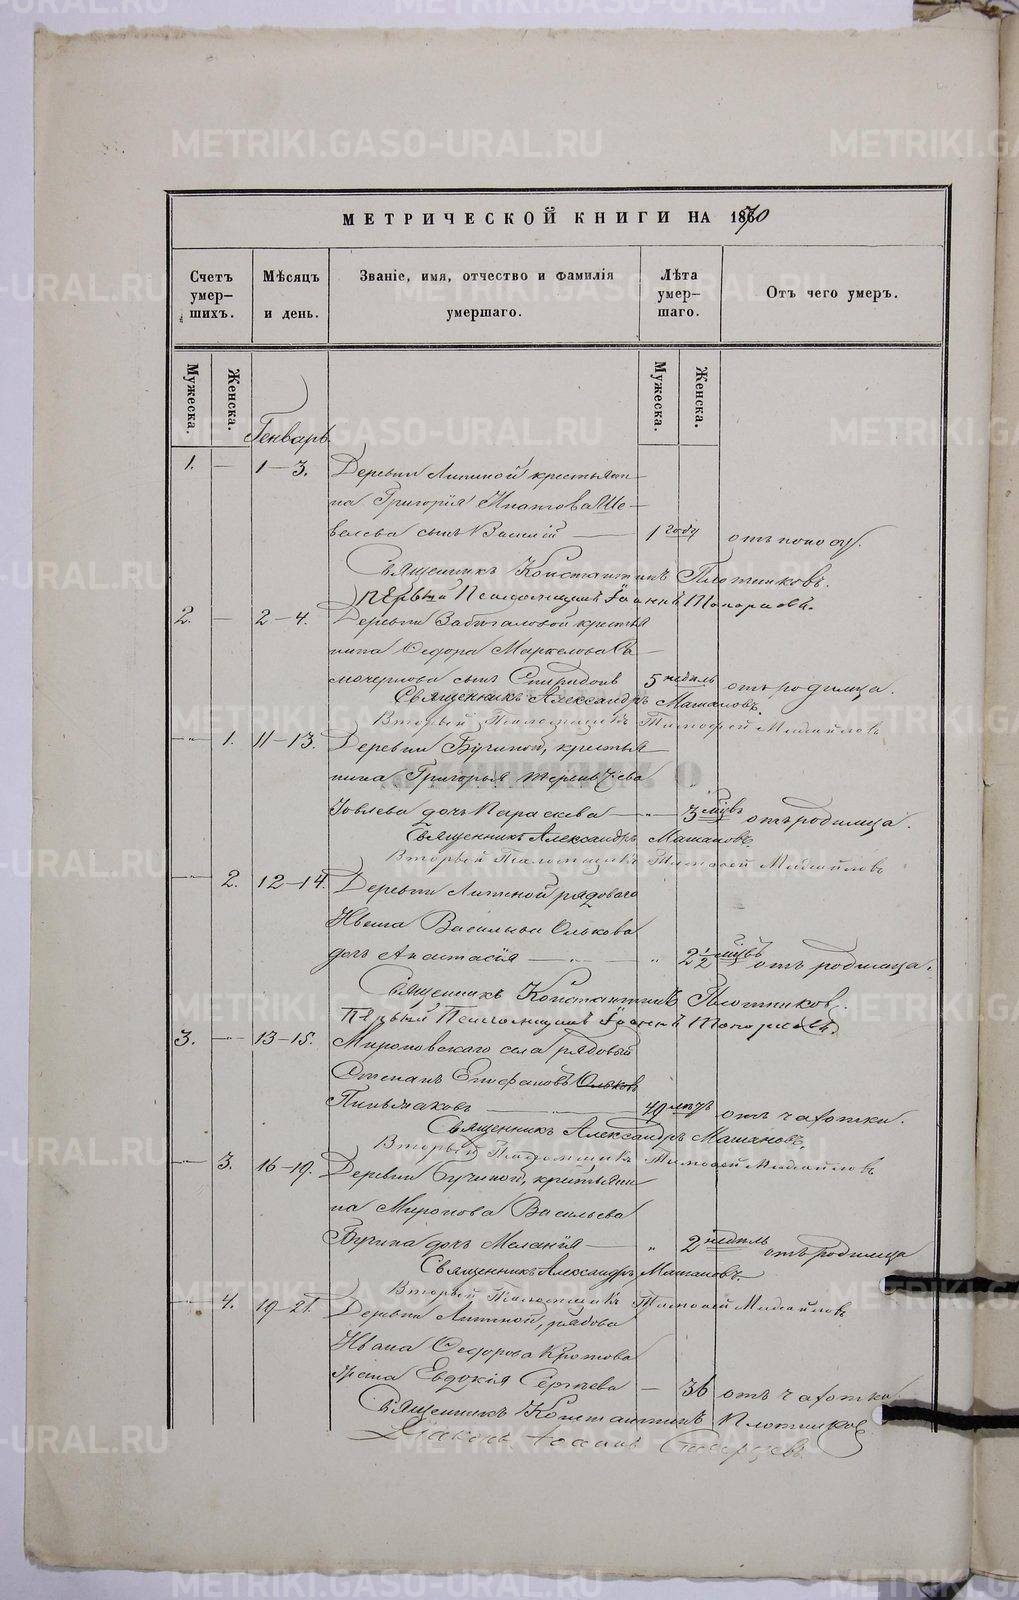 МЕТРИЧЕСКОЙ КНИГИ НА 1870
Счетъ умер-
шихъ.
Мѣсяцъ
и день.
Званіе, имя, отчество и фамилія
умершаго.
Лѣта
умер-
шаго.
Отъ чего умеръ.
Мужеска.
Женска.
Мужеска.
Женска.
Генварь
1. — 1—3. Деревни Липиной крестьяни-
на Григорія Ипатова Ше-
велева сынъ Василій — 1 году отъ поносу.
Священникъ Константинъ Плотниковъ.
Первый Псаломщикъ Іоаннъ Топорковъ.
2. — 2—4. Деревни крестья
нина Ѳедора Маркелова
сынъ Спиридонъ 5 недѣль отъ родимца.
Священникъ Александръ
Вторый Псаломщикъ Тимоѳей Михайловъ
— 1. 11—13. Деревни Бучиной, крестья
нина Григорья
Іовлева дочь Параскева — „ 3 мѣсв отъ родимца.
Священникъ Александръ
Вторый Псаломщикъ Тимоѳей Михайловъ
— 2. 12—14. Деревни Липиной рядового
Ивана Васильева Олькова
дочь Анастасія — „ 2 1/2 мѣсв отъ родимца.
Священникъ Константинъ Плотниковъ.
Первый Псаломщикъ Іоаннъ Топорковъ.
3. — 13—15. Мироновскаго села рядовый
Степанъ Епифановъ Ольковъ
49 лѣтъ отъ чахотки.
Священникъ Александръ
Вторый Псаломщикъ Тимоѳей Михайловъ
— 3. 16—19. Деревни Бучиной, крестьяни
на Миронова Васильева
Бучина дочь Меланія — „ 2 недѣль отъ родимца
Священникъ Александръ
Вторый Псаломщикъ Тимоѳей Михайловъ
— 4. 19—21. Деревни Липиной, рядова
Ивана Ѳедорова Кротова
жена Евдокія Сергѣева — 36 отъ чахотки.
Священникъ Константинъ Плотниковъ
Діаконъ Іоаннъ
METRIKI.GASO-URAL.RU